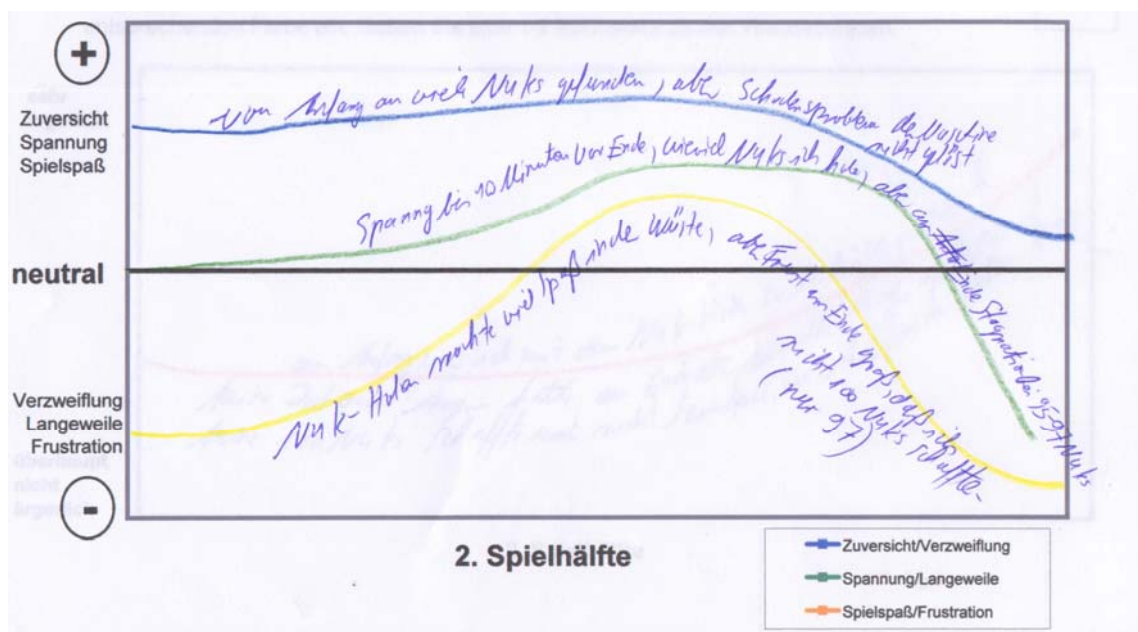 +
Zuversicht
Spannung
Spielspaß
neutral
Verzweiflung
Langeweile
Frustration
-
von Anfang an viele Nuks gefunden, aber Schadensproblem der Maschine
nicht gelöst
Spanng bis 10 Minuten vor Ende, wieviel Nuks ich hole, aber am Ende Stagnation bei 95-97 Nuks
Nuk-Holen machte viel Spaß in der Wüste, aber Frust am Ende groß, daß ich
nicht 100 Nuks schaffte
(nur 97)
2. Spielhälfte
Zuversicht/Verzweiflung
Spannung/Langeweile
Spielspaß/Frustration